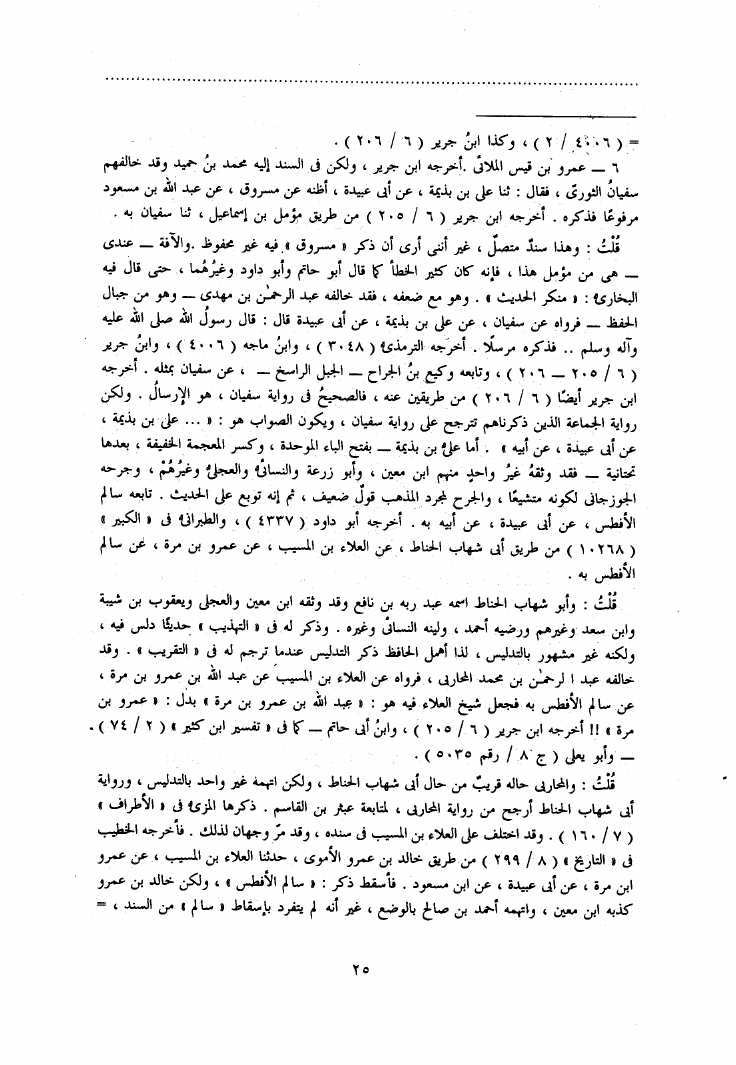 ................................................................
= ( ٤٠٠٦ / ٢ ) ، وكذا ابنُ جرير ( ٦ / ٢٠٦ ) .
٦ ــ عمرو بن قيس الملائى . أخرجه ابن جرير ، ولكن فى السند إليه محمد بنُ حميد وقد خالفهم
سفيانُ الثورىّ ، فقال : ثنا على بن بذيمة ، عن أبى عبيدة ، أظنه عن مسروق ، عن عبد الله بن مسعود
مرفوعًا فذكره . أخرجه ابن جرير ( ٦ / ٢٠٥ ) من طريق مؤمل بن إسماعيل ، ثنا سفيان به .
قُلْتُ : وهذا سندٌ متصلٌ ، غير أننى أرى أن ذكر « مسروق » فيه غير محفوظ . والآفة ــ عندى
ــ هى من مؤمل هذا ، فإنه كان كثير الخطأ كما قال أبو حاتم وأبو داود وغيرُهُما ، حتى قال فيه
البخارىُّ : « منكر الحديث » . وهو مع ضعفه ، فقد خالفه عبد الرحمٰن بن مهدى ــ وهو من جبال
الحفظ ــ فرواه عن سفيان ، عن على بن بذيمة ، عن أبى عبيدة قال : قال رسولُ الله صلى الله عليه
وآله وسلم .. فذكره مرسلًا . أخرجه الترمذىُّ ( ٣٠٤٨ ) ، وابنُ ماجه ( ٤٠٠٦ ) ، وابنُ جرير
( ٦ / ٢٠٥ ــ ٢٠٦ ) ، وتابعه وكيع بنُ الجراح ــ الجبل الراسخ ــ ، عن سفيان بمثله . أخرجه
ابن جرير أيضًا ( ٦ / ٢٠٦ ) من طريقين عنه ، فالصحيحُ فى رواية سفيان ، هو الإرسالُ . ولكن
رواية الجماعة الذين ذكرناهم تترجح على رواية سفيان ، ويكون الصواب هو : « ... على بن بذيمة ،
عن أبى عبيدة ، عن أبيه » . أما علىُّ بن بذيمة ــ بفتح الباء الموحدة ، وكسر المعجمة الخفيفة ، بعدها
تحتانية ــ فقد وثقهُ غيرُ واحدٍ منهم ابن معين ، وأبو زرعة والنسائىُّ والعجلىُّ وغيرُهُمْ ، وجرحه
الجوزجانى لكونه متشيعًا ، والجرح لمجرد المذهب قولٌ ضعيف ، ثم إنه توبع على الحديث . تابعه سالم
الأفطس ، عن أبى عبيدة ، عن أبيه به . أخرجه أبو داود ( ٤٣٣٧ ) ، والطبرانىُّ فى « الكبير »
( ١٠٢٦٨ ) من طريق أبى شهاب الحناط ، عن العلاء بن المسيب ، عن عمرو بن مرة ، عن سالم
الأفطس به .
قُلْتُ : وأبو شهاب الحناط اسمه عبد ربه بن نافع وقد وثقه ابن معين والعجلى ويعقوب بن شيبة
وابن سعد وغيرهم ورضيه أحمد ، ولينه النسائىُّ وغيره . وذكر له فى « التهذيب » حديثًا دلس فيه ،
ولكنه غير مشهور بالتدليس ، لذا أهمل الحافظ ذكر التدليس عندما ترجم له فى « التقريب » . وقد
خالفه عبد ا لرحمٰن بن محمد المحاربى ، فرواه عن العلاء بن المسيب عن عبد الله بن عمرو بن مرة ،
عن سالم الأفطس به فجعل شيخ العلاء فيه هو : « عبد الله بن عمرو بن مرة » بدل : « عمرو بن
مرة » !! أخرجه ابن جرير ( ٦ / ٢٠٥ ) ، وابنُ أبى حاتم ــ كما فى « تفسير ابن كثير » ( ٢ / ٧٤ ) .
ــ وأبو يعلى ( ج ٨ / رقم ٥٠٣٥ ) .
قُلْتُ : والمحاربى حاله قريبٌ من حال أبى شهاب الحناط ، ولكن اتهمه غير واحد بالتدليس ، ورواية
أبى شهاب الحناط أرجح من رواية المحاربى ، لمتابعة عبثر بن القاسم . ذكرها المزىُّ فى « الأطراف »
( ٧ / ١٦٠ ) . وقد اختلف على العلاء بن المسيب فى سنده ، وقد مرّ وجهان لذلك . فأخرجه الخطيب
فى « التاريخ » ( ٨ / ٢٩٩ ) من طريق خالد بن عمرو الأموى ، حدثنا العلاء بن المسيب ، عن عمرو
ابن مرة ، عن أبى عبيدة ، عن ابن مسعود . فأسقط ذكر : « سالم الأفطس » ، ولكن خالد بن عمرو
كذبه ابن معين ، واتهمه أحمد بن صالح بالوضع ، غير أنه لم يتفرد بإسقاط « سالم » من السند ، =
٢٥